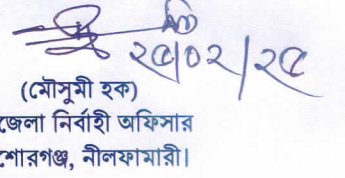 ২৫/০২/২৫
(মৌসুমী হক)
জেলা নির্বাহী অফিসার
শোরগঞ্জ, নীলফামারী।